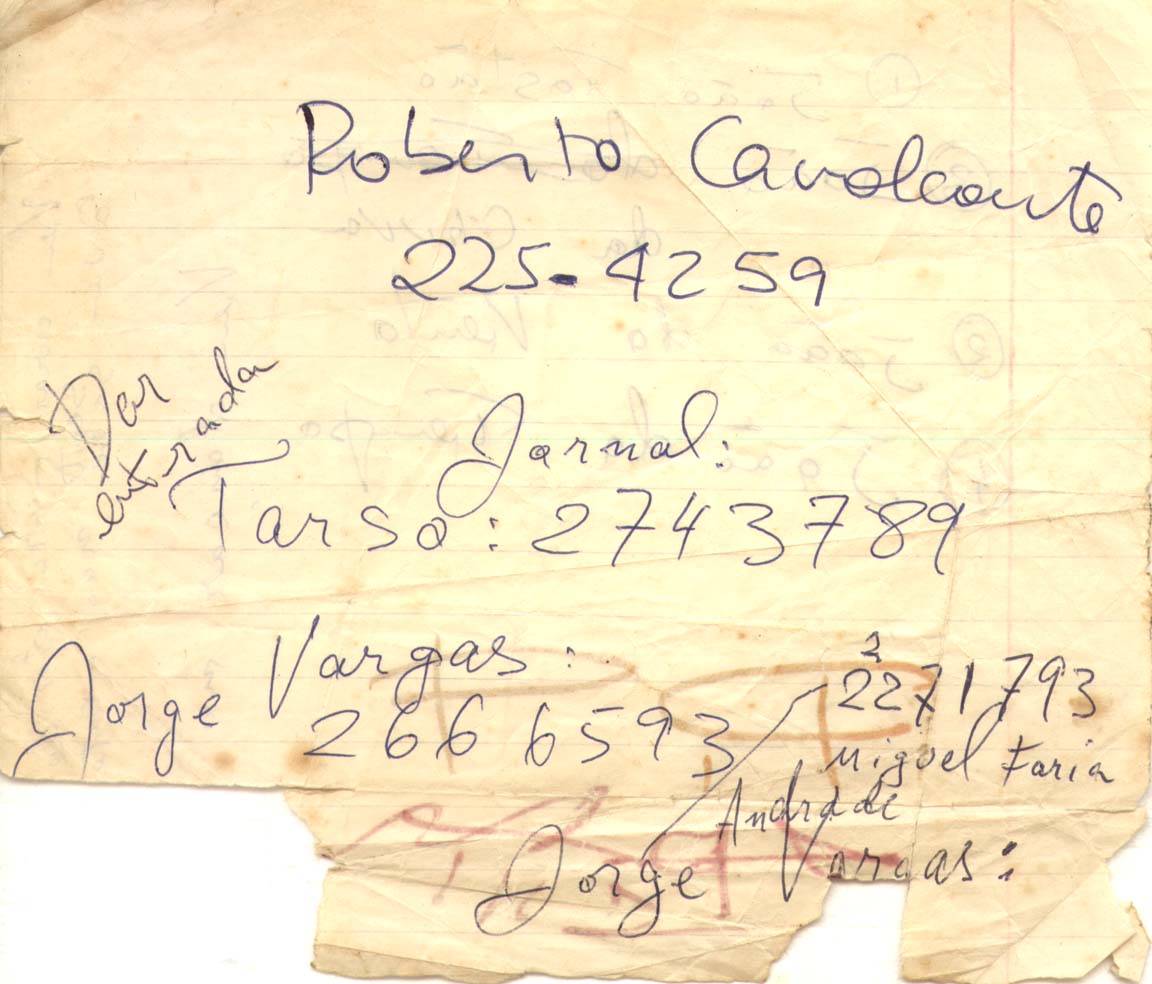 Roberto Cavalcante
225-4259
Dar
entrada
Jornal:
Tarso: 2743789
Jorge Vargas:
266 6593
2
2271793
Miguel Faria
Andrade
Jorge Vargas: